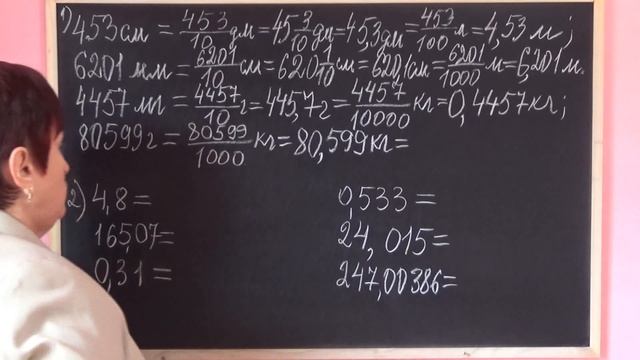 1) 453 см = 453/10 дм = 45 3/10 дм = 45,3 дм = 453/100 м = 4,53 м;
6201 мм = 6201/10 см = 620 1/10 см = 620,1 см = 6201/1000 м = 6,201 м.
4457 мг = 4457/10 г = 445,7 г = 4457/10000 кг = 0,4457 кг;
80599 г = 80599/1000 кг = 80,599 кг =
2) 4,8 = 0,533 =
165,07 = 24,015 =
0,31 = 247,00386 =